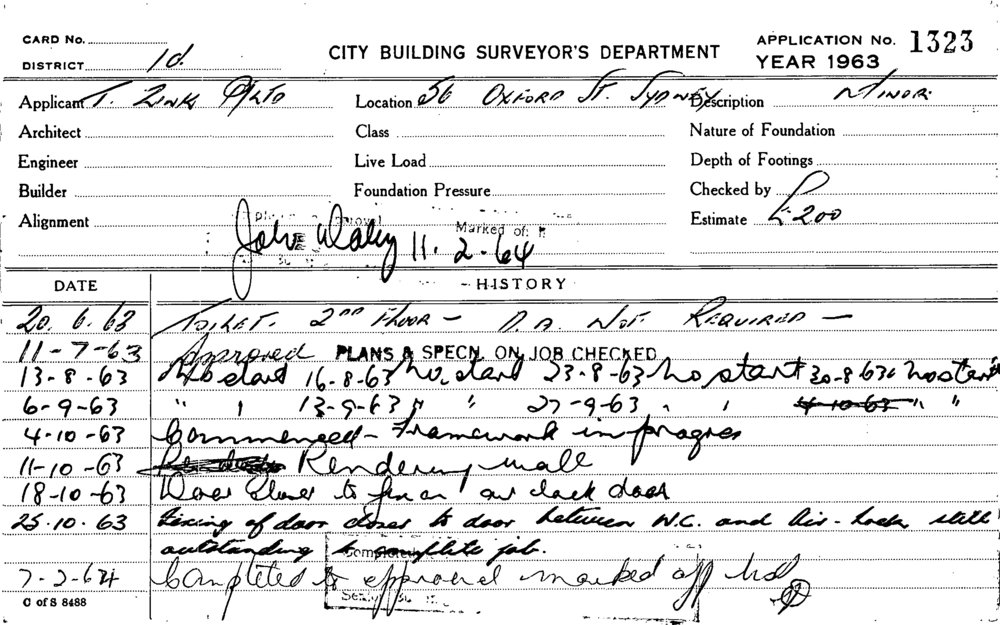 CARD No.
DISTRICT 1d.
CITY BUILDING SURVEYOR'S DEPARTMENT
APPLICATION No. 1323
YEAR 1963
Applicant T. Zink P/LTD Location 56 OXFORD ST. SYDNEY Description MINOR.
Architect Class Nature of Foundation
Engineer Live Load Depth of Footings
Builder Foundation Pressure Checked by
Alignment Estimate £200
Marked off
John Daley 11.2.64
DATE HISTORY
20.6.63 TOILET. 2ND FLOOR — D.A. NOT REQUIRED —
11-7-63 Approved PLANS & SPECN. ON JOB CHECKED
13-8-63 No start 16-8-63 No start 23-8-63 No start 30-8-63 no start
6-9-63 " " 13-9-63 " " 27-9-63 " " 4-10-63 " "
4-10-63 Commenced - Framework in progres
11-10-63 Rendering wall
18-10-63 Door closer to fix on air lock door
25.10.63 Fixing of door closer to door between W.C. and Air-Lock still
outstanding to complete job.
Completed
7-2-64 Completed to approval marked off
C of S 8488